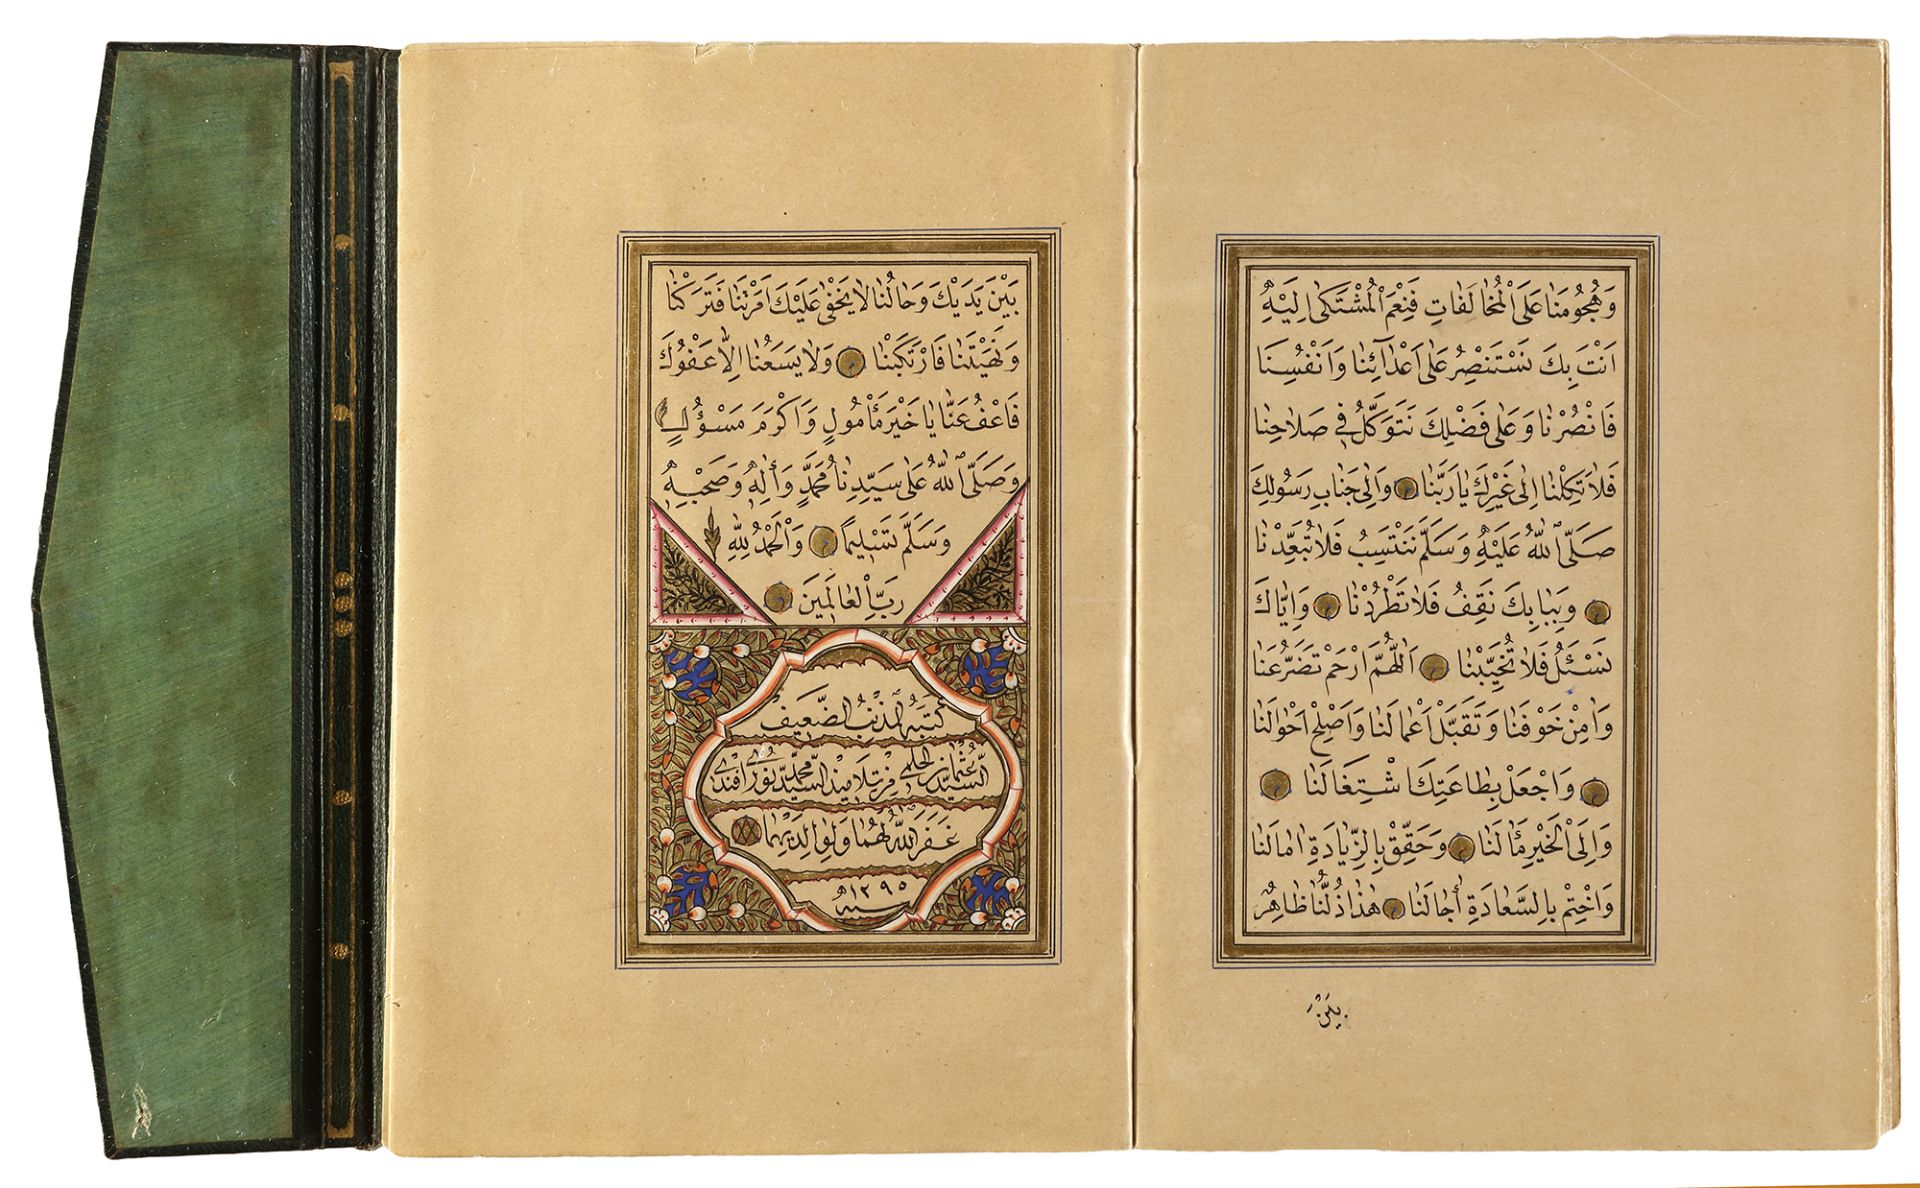 وَهُجُومَنَا عَلَى الْمُخَالَفَاتِ فَنِعْمَ الْمُشْتَكٰى اِلَيْهِ
اَنْتَ بِكَ نَسْتَنْصِرُ عَلٰى اَعْدَآئِنَا وَاَنْفُسِنَا
فَانْصُرْنَا وَعَلٰى فَضْلِكَ نَتَوَكَّلُ فِي صَلَاحِنَا
فَلَا تَكِلْنَا اِلٰى غَيْرِكَ يَا رَبَّنَا وَاِلٰى جَنَابِ رَسُولِكَ
صَلَّى اللّٰهُ عَلَيْهِ وَسَلَّمَ نَنْتَسِبُ فَلَا تُبَعِّدْنَا
وَبِبَابِكَ نَقِفُ فَلَا تَطْرُدْنَا وَاِيَّاكَ
نَسْئَلُ فَلَا تُخَيِّبْنَا اَللّٰهُمَّ ارْحَمْ تَضَرُّعَنَا
وَاٰمِنْ خَوْفَنَا وَتَقَبَّلْ اَعْمَالَنَا وَاَصْلِحْ اَحْوَالَنَا
وَاجْعَلْ بِطَاعَتِكَ اشْتِغَالَنَا
وَاِلَى الْخَيْرِ مَاٰلَنَا وَحَقِّقْ بِالزِّيَادَةِ اٰمَالَنَا
وَاخْتِمْ بِالسَّعَادَةِ اٰجَالَنَا هٰذَا ذُلُّنَا ظَاهِرٌ
بَيْنَ
بَيْنَ يَدَيْكَ وَحَالُنَا لَا يَخْفٰى عَلَيْكَ اَمَرْتَنَا فَتَرَكْنَا
وَنَهَيْتَنَا فَارْتَكَبْنَا وَلَا يَسَعُنَا اِلَّا عَفْوُكَ
فَاعْفُ عَنَّا يَا خَيْرَ مَأْمُولٍ وَاَكْرَمَ مَسْؤُلٍ
وَصَلَّى اللّٰهُ عَلٰى سَيِّدِنَا مُحَمَّدٍ وَاٰلِهِ وَصَحْبِهِ
وَسَلَّمَ تَسْلِيمًا وَالْحَمْدُ لِلّٰهِ
رَبِّ الْعَالَمِينَ
كتبه المذنب الضعيف
السيد عثمان الحلمي من تلاميذ السيد محمد نوري افندي
غَفَرَ اللّٰهُ لَهُمَا وَلِوَالِدَيْهِمَا
سنه ١٢٩٥